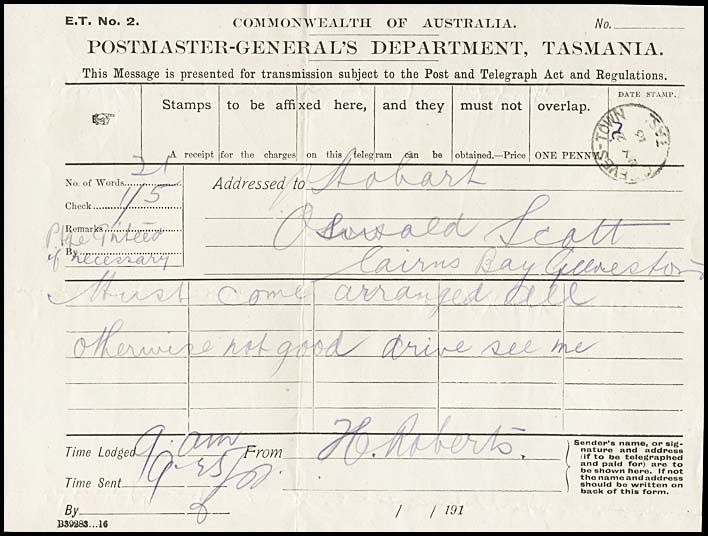 E.T. No. 2.
COMMONWEALTH OF AUSTRALIA.
No.
POSTMASTER-GENERAL'S DEPARTMENT, TASMANIA.
This Message is presented for transmission subject to the Post and Telegraph Act and Regulations.
Stamps to be affixed here, and they must not overlap.
DATE STAMP.
A receipt for the charges on this telegram can be obtained.—Price ONE PENNY
No. of Words 21
Check 1/5
Remarks
By
if necessary
Addressed to Hobart
Oswald Scott
Cairns Bay Geeveston
Must come arranged
otherwise not good drive see me
Time Lodged 9. am
From H. Roberts.
Time Sent
Sender's name, or sig-
nature and address
(if to be telegraphed
and paid for) are to
be shown here. If not
the name and address
should be written on
back of this form.
By
/ / 191
B39283...16